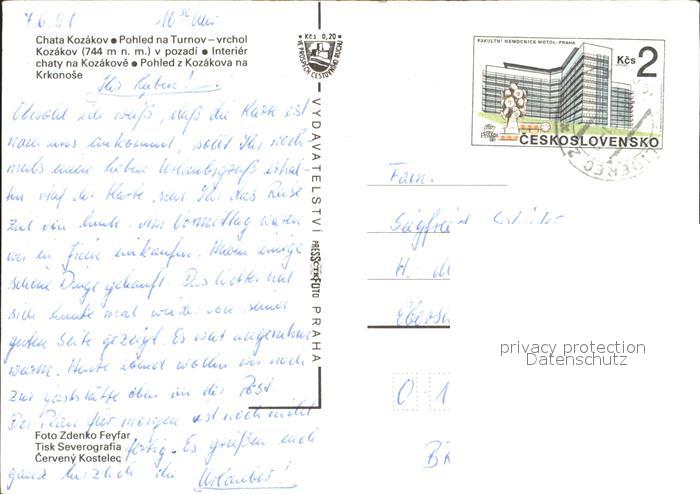 7.6.91 16³⁰ Uhr
Chata Kozákov ● Pohled na Turnov – vrchol
Kozákov (744 m n. m.) v pozadí ● Interiér
chaty na Kozákově ● Pohled z Kozákova na
Krkonoše
Ihr Lieben!
Obwohl ich weiß, daß die Karte erst
nach uns ankommt, sollt Ihr noch
mals einen lieben Urlaubsgruß erhal-
ten. Auf der Karte seht Ihr das Reise
ziel von heute. Am Vormittag waren
wir in Jicin einkaufen. Haben einige
schöne Dinge gekauft. Das Wetter hat
sich heute mal wieder von seiner
guten Seite gezeigt. Es war angenehm
warm. Heute abend wollen wir noch
zur Gaststätte oben an der Post
Der Plan für morgen ist noch nicht
fertig. Es grüßen euch
ganz herzlich die Urlauber!
Foto Zdenko Feyfar
Tisk Severografia
Červený Kostelec
Kčs 0,20
VE PROSPĚCH CESTOVNÍHO RUCHU
VYDAVATELSTVÍ PRESSFOTO PRAHA
FAKULTNÍ NEMOCNICE MOTOL-PRAHA
Kčs 2
ČESKOSLOVENSKO
LIBEREC 2
Fam.
Siegfried
H.-
Ebers
O-1
privacy protection
Datenschutz